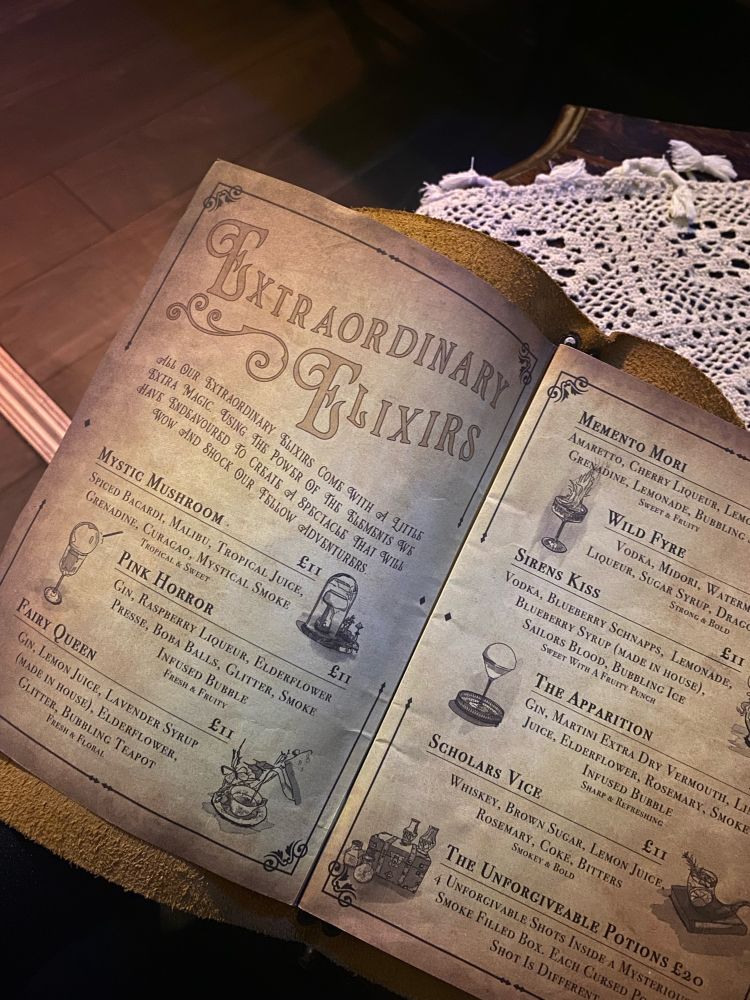 Extraordinary
Elixirs
All Our Extraordinary Elixirs Come With A Little
Extra Magic. Using The Power Of The Elements We
Have Endeavoured To Create A Spectacle That Will
Wow And Shock Our Fellow Adventurers
Mystic Mushroom
£11
Spiced Bacardi, Malibu, Tropical Juice,
Grenadine, Curacao, Mystical Smoke
Tropical & Sweet
Pink Horror
£11
Gin, Raspberry Liqueur, Elderflower
Presse, Boba Balls, Glitter, Smoke
Infused Bubble
Fresh & Fruity
Fairy Queen
£11
Gin, Lemon Juice, Lavender Syrup
(made in house), Elderflower,
Glitter, Bubbling Teapot
Fresh & Floral
Memento Mori
Amaretto, Cherry Liqueur,
Grenadine, Lemonade, Bubbling
Sweet & Fruity
Wild Fyre
Vodka, Midori,
Liqueur, Sugar Syrup,
Strong & Bold
Sirens Kiss
£11
Vodka, Blueberry Schnapps, Lemonade,
Blueberry Syrup (made in house),
Sailors Blood, Bubbling Ice
Sweet With A Fruity Punch
The Apparition
Gin, Martini Extra Dry Vermouth,
Juice, Elderflower, Rosemary, Smoke
Infused Bubble
Sharp & Refreshing
Scholars Vice
£11
Whiskey, Brown Sugar, Lemon Juice,
Rosemary, Coke, Bitters
Smokey & Bold
The Unforgiveable Potions £20
4 Unforgivable Shots Inside a Mysterious
Smoke Filled Box. Each Cursed
Shot Is Different